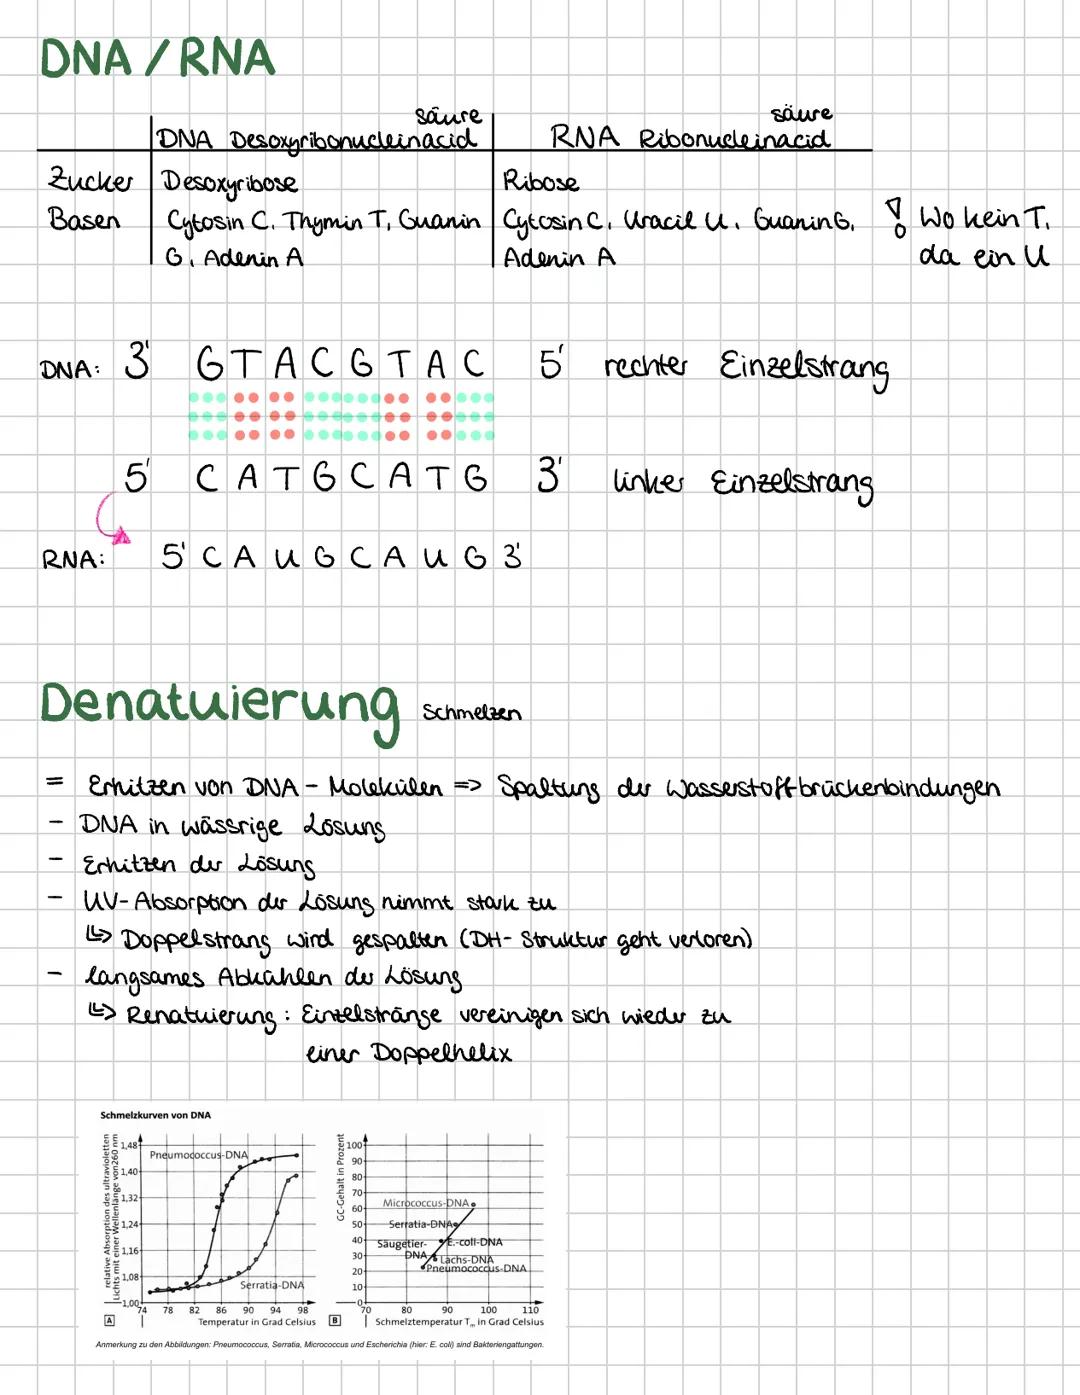 DNA / RNA
säure säure
DNA Desoxyribonucleinacid RNA Ribonucleinacid
Zucker Desoxyribose Ribose
Basen Cytosin C, Thymin T, Guanin Cytosin C, Uracil U, Guanin G, ! Wo kein T,
G, Adenin A Adenin A da ein U
DNA: 3' G T A C G T A C 5' rechter Einzelstrang
5' C A T G C A T G 3' linker Einzelstrang
RNA: 5' C A U G C A U G 3'
Denatuierung Schmelzen
= Erhitzen von DNA - Molekülen => Spaltung der Wasserstoffbrückenbindungen
- DNA in wässrige Lösung
- Erhitzen der Lösung
- UV-Absorption der Lösung nimmt stark zu
↳ Doppelstrang wird gespalten (DH-Struktur geht verloren)
- langsames Abkühlen der Lösung
↳ Renatuierung: Einzelstränge vereinigen sich wieder zu
einer Doppelhelix
Schmelzkurven von DNA
relative Absorption des ultravioletten
Lichts mit einer Wellenlänge von 260 nm
1,48
1,40
1,32
1,24
1,16
1,08
1,00
Pneumococcus-DNA
Serratia-DNA
74 78 82 86 90 94 98
A Temperatur in Grad Celsius
GC-Gehalt in Prozent
100
90
80
70
60
50
40
30
20
10
0
Micrococcus-DNA
Serratia-DNA
Säugetier-DNA
E.-coli-DNA
Lachs-DNA
Pneumococcus-DNA
70 80 90 100 110
B Schmelztemperatur Tm in Grad Celsius
Anmerkung zu den Abbildungen: Pneumococcus, Serratia, Micrococcus und Escherichia (hier: E. coli) sind Bakteriengattungen.